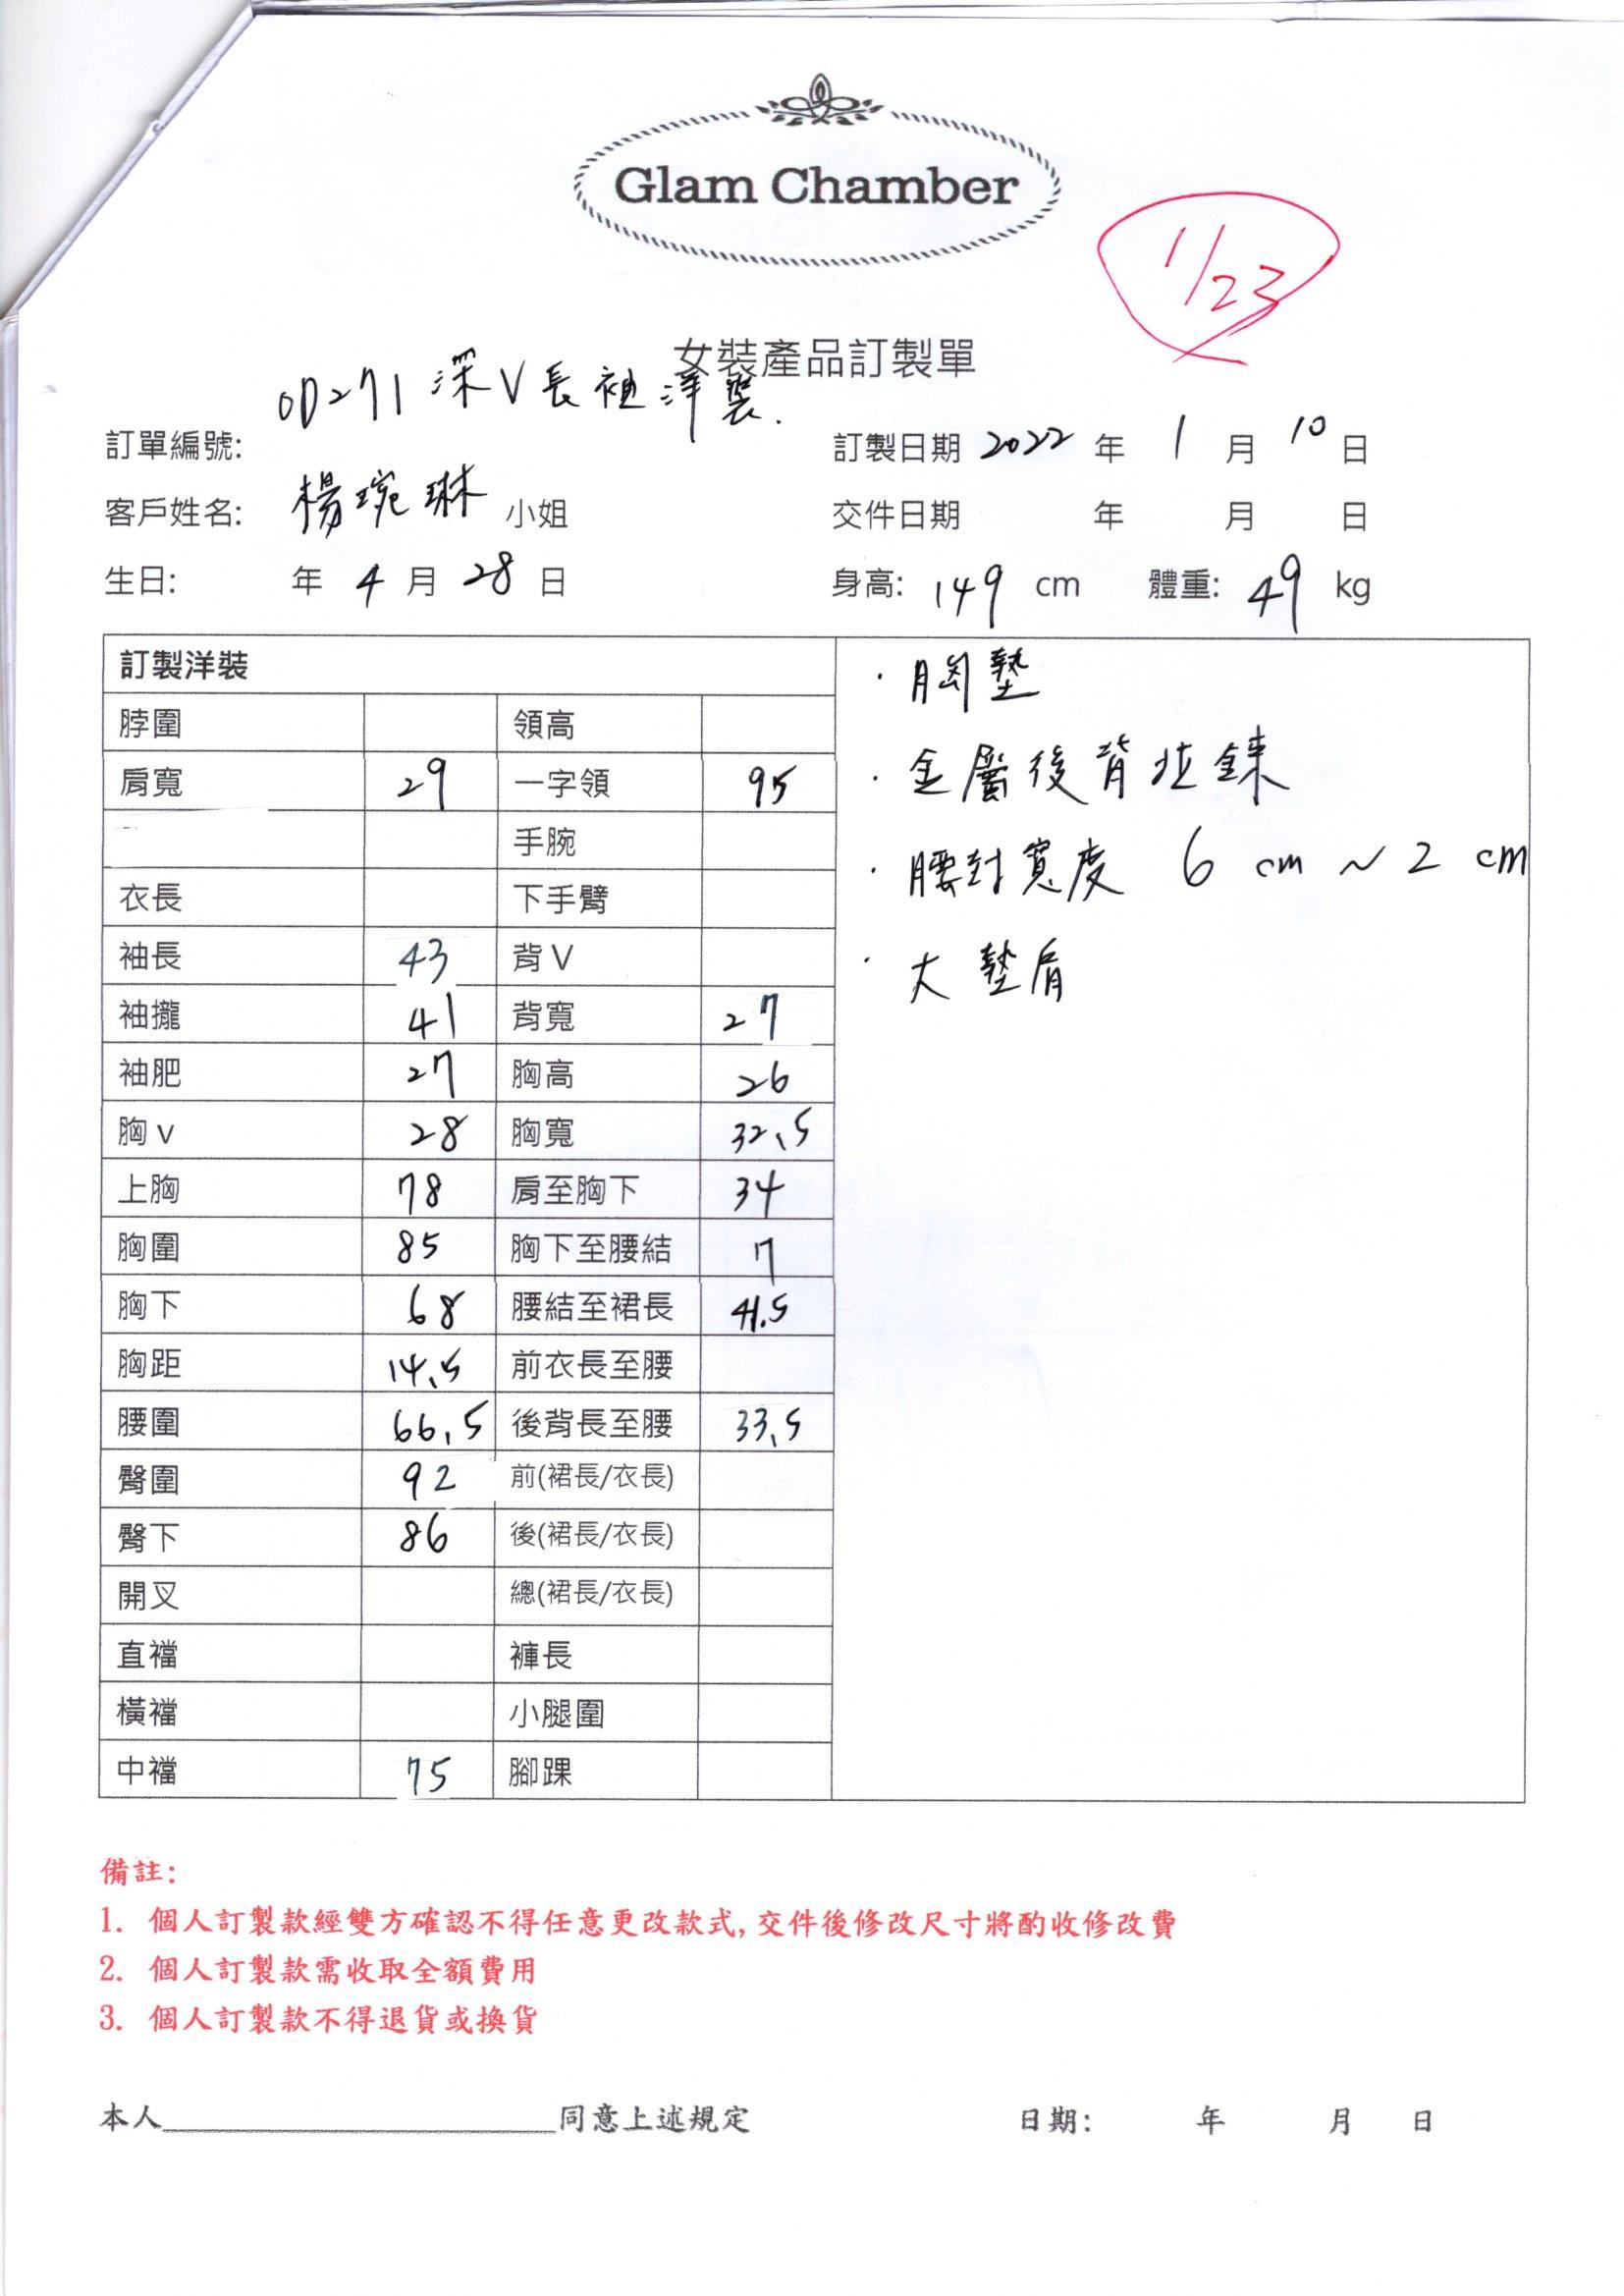 Glam Chamber
1/23
女裝產品訂製單
OD271 深V長袖洋裝.
訂單編號: 訂製日期 2022 年 1 月 10 日
客戶姓名: 楊琬琳 小姐 交件日期 年 月 日
生日: 年 4 月 28 日 身高: 149 cm 體重: 49 kg
訂製洋裝
脖圍 領高
肩寬 29 一字領 95
手腕
衣長 下手臂
袖長 43 背V
袖攏 41 背寬 27
袖肥 27 胸高 26
胸v 28 胸寬 32.5
上胸 78 肩至胸下 34
胸圍 85 胸下至腰結 7
胸下 68 腰結至裙長 41.5
胸距 14.5 前衣長至腰
腰圍 66.5 後背長至腰 33.5
臀圍 92 前(裙長/衣長)
臀下 86 後(裙長/衣長)
開叉 總(裙長/衣長)
直襠 褲長
橫襠 小腿圍
中襠 75 腳踝
· 胸墊
· 金屬後背拉鍊
· 腰封寬度 6 cm ~ 2 cm
· 大墊肩
備註:
1. 個人訂製款經雙方確認不得任意更改款式, 交件後修改尺寸將酌收修改費
2. 個人訂製款需收取全額費用
3. 個人訂製款不得退貨或換貨
本人____________________同意上述規定 日期: 年 月 日